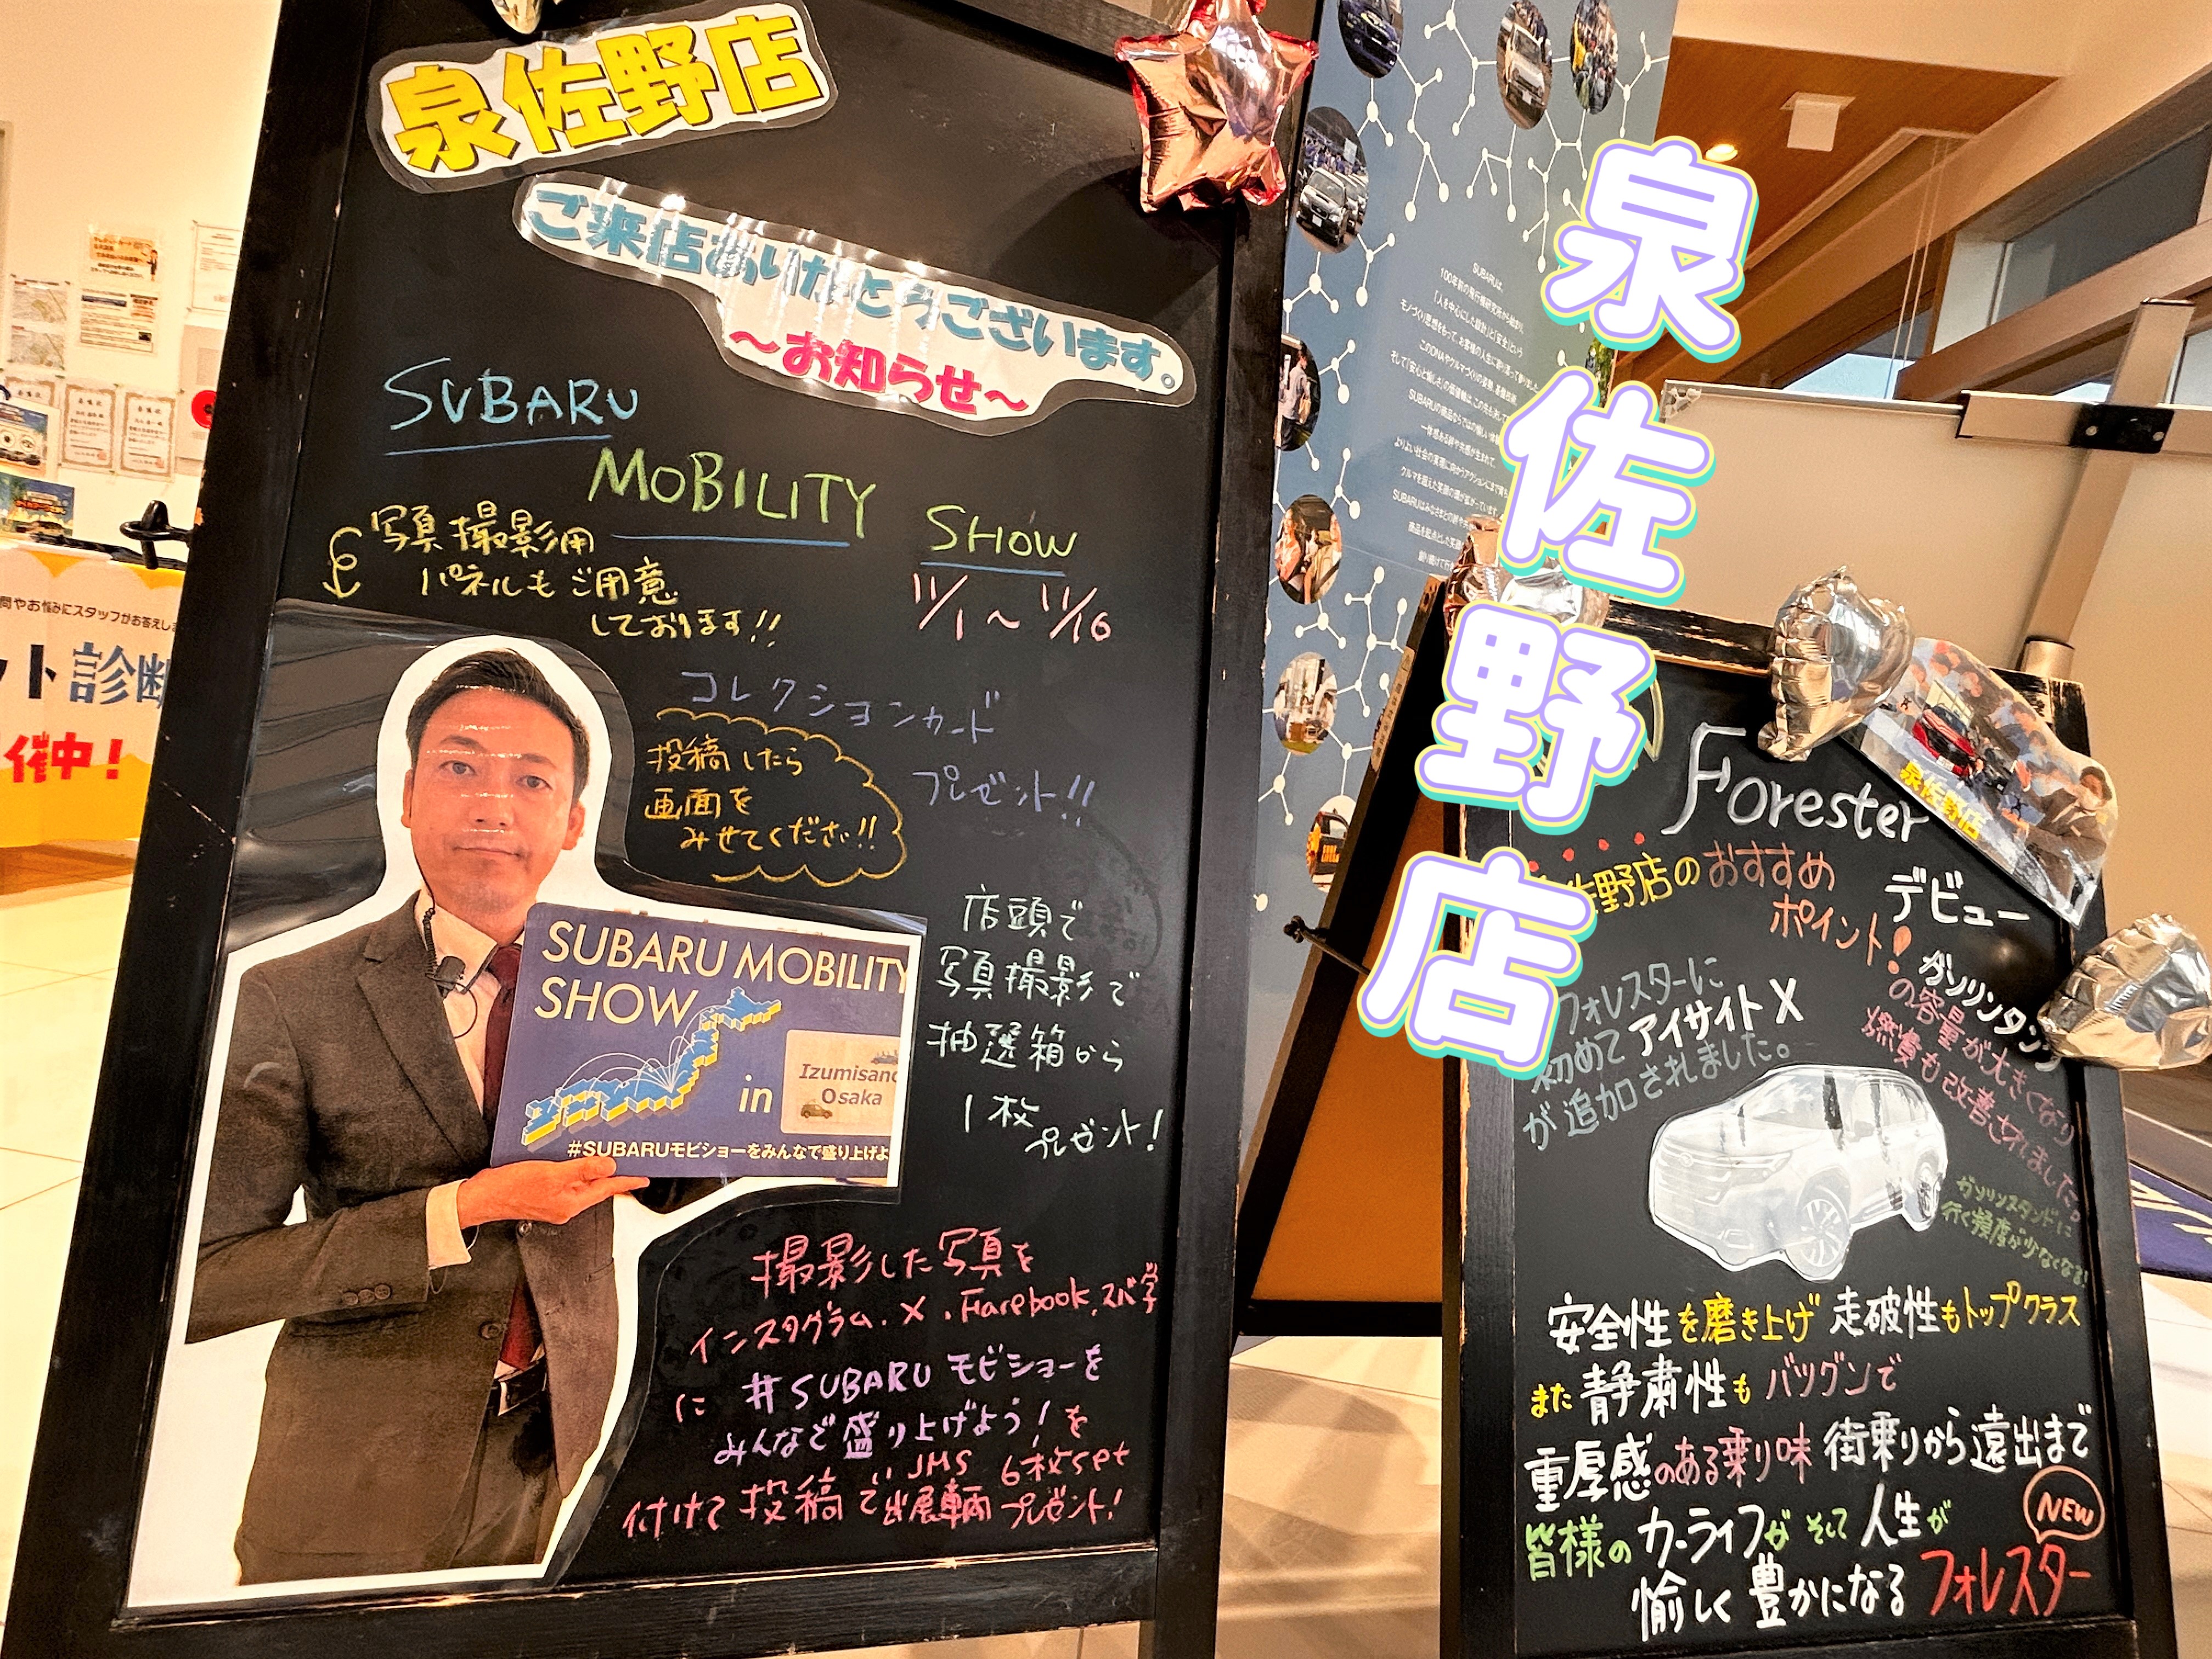 泉佐野店
ご来店ありがとうございます。
～お知らせ～
SUBARU
MOBILITY
SHOW
11/1～11/16
写真撮影用
パネルもご用意
しております!!
コレクションカード
プレゼント!!
投稿したら
画面を
みせてください!!
店頭で
写真撮影で
抽選箱から
1枚
プレゼント!
SUBARU MOBILITY
SHOW
in
Izumisano
Osaka
#SUBARUモビショーをみんなで盛り上げよ
撮影した写真を
インスタグラム.X.Facebook.スバ学
に #SUBARUモビショーを
みんなで盛り上げよう!を
付けて投稿でJMS
出展車両6枚set
プレゼント!
泉佐野店
Forester
デビュー
佐野店のおすすめ
ポイント!
フォレスターに
初めてアイサイトX
が追加されました。
ガソリンタンク
の容量が大きくなり
燃費も改善されました。
ガソリンスタンドに
行く頻度が少なくなる!
安全性を磨き上げ 走破性もトップクラス
また静粛性もバツグンで
重厚感のある乗り味 街乗りから遠出まで
皆様のカーライフがそして人生が
愉しく豊かになる
NEW
フォレスター
泉佐野店
SUBARUは、
100年前の飛行機研究所から始まり、
「人を中心にした設計」と「安全」という
問やお悩みにスタッフがお答えしま
ット診断
催中!